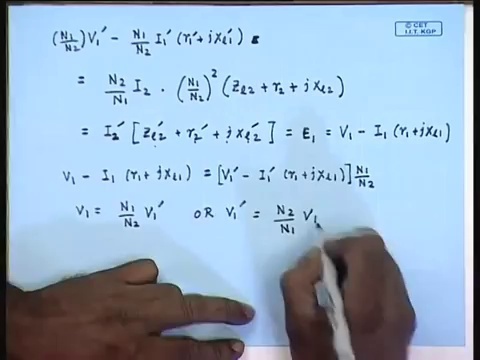 © CET
I.I.T. KGP
(N₁/N₂) V₁′ − N₁/N₂ I₁′ (r₁′ + jxl₁′) =
= N₂/N₁ I₂ · (N₁/N₂)² (Zl₂ + r₂ + jxl₂)
= I₂′ [Zl₂′ + r₂′ + jxl₂′] = E₁ = V₁ − I₁ (r₁ + jxl₁)
V₁ − I₁ (r₁ + jxl₁) = [V₁′ − I₁′ (r₁ + jxl₁)] N₁/N₂
V₁ = N₁/N₂ V₁′ OR V₁′ = N₂/N₁ V₁